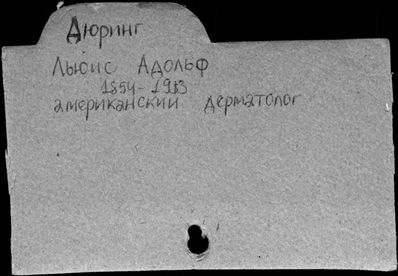 Дюринг
Льюис Адольф
1854-1913
американский дерматолог